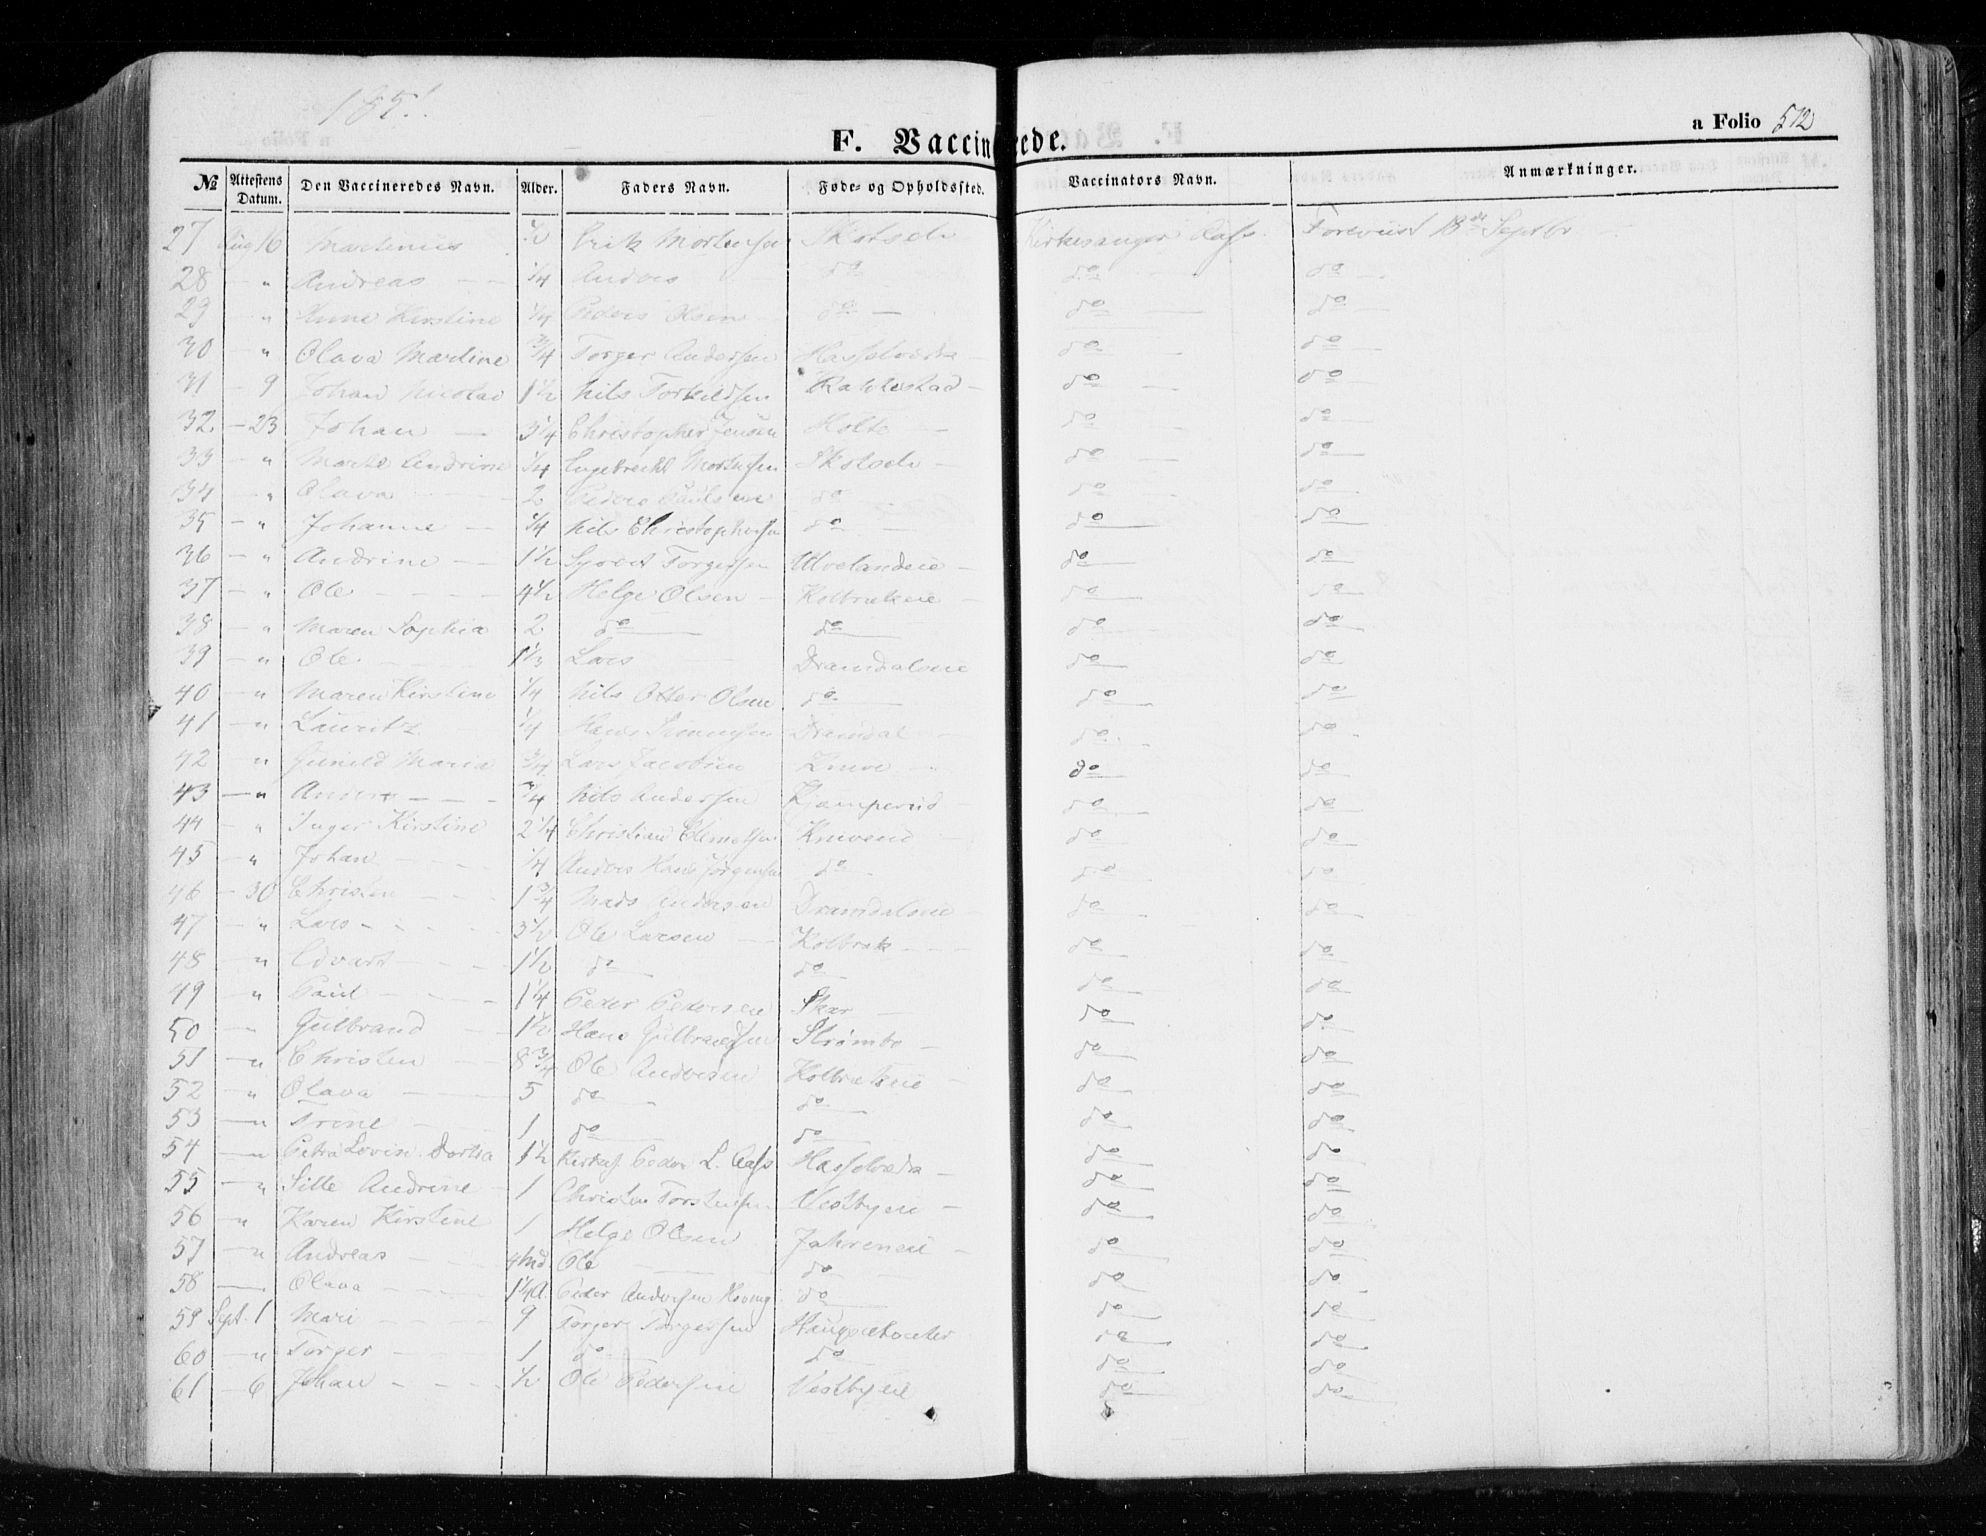 1851.
F. Vaccinerede.
a Folio 512
№ | Attestens Datum. | Den Vaccineredes Navn. | Alder. | Faders Navn. | Føde- og Opholdssted. | Vaccinators Navn. | Anmærkninger.
27 Aug 16 Martinus ½ Erik Mortensen Skotsch Kirkesanger Aass. Forevist 18de Septbr
28 - " Andreas - - ¼ Anders do do do
29 " Anne Kirstine ¼ Peder Olsen do do do
30 " Olava Martine ¾ Torger Andersen Hasselvedra do do
31 - 9 Johan Nicolai 1½ Nils Torkildsen Rakkestad do do
32. - 23 Johan - 3¼ Christopher Jensen Holte do do
33 - " Marte Andrine ¼ Engebreckt Mortensen Skotsch do do
34 - " Olava 2 Peder Paulsen do do do
35 - " Johanne - ¼ Nils Christophersen do do do
36 - " Andrine - 1½ Syvert Torgersen Ulvelandeie do do
37 - " Ole - - - 4½ Helge Olsen Kolbrækeie do do
38 - " Maren Sophia 2 do do do do
39 - " Ole - - 1⅓ Lars Dramdalseie do do
40 - " Maren Kirstine ¼ Nils Otter Olsen do do do
41 - " Lauritz ¼ Hans Simensen Dramdal do do
42 " Gunild Maria ¾ Lars Jacobsen Knive do do
43 - " Anders - - ¾ Nils Andersen Kjamperud do do
44 - " Inger Kirstine 2¼ Christian Clemetsen Kniveeie do do
45 " Johan - - - ¼ Anders Hans Jørgensen do do do
46 - 30 Christen - - 1¾ Mads Andersen Dramdalseie do do
47 - " Lars - - - - 3½ Ole Larsen Kolbræk do do
48 - " Edvart - - 1½ do do do do
49 - " Paul - - - 1¼ Peder Pedersen Skar do do
50 " Gulbrand - 1½ Hans Gulbrandsen Strømbo do do
51 - " Christen - 8¾ Ole Andersen Kolbrækeie do do
52 " Olava 5 do do do do
53 - " Trine 1 do do do do
54 - " Petra Lovise Dortea 1½ Kirkes. Peder L. Aass Hasselvedra do do
55 - " Sille Andrine 1 Christen Torstensen Vestbyeie do do
56 - " Karen Kirstine 1 Helge Olsen Jahreneie do do
57 - " Andreas 4 Md. Ole do do do
58 - Olava 1¼ A Peder Andersen Hoveng do do do
59 Sept. 1 Mari - - - 9 Torger Torgersen do do
60 - " Torger - 1 do do do do
61 - 6 Johan - - - ½ Ole Pedersen Vestbyeie do do